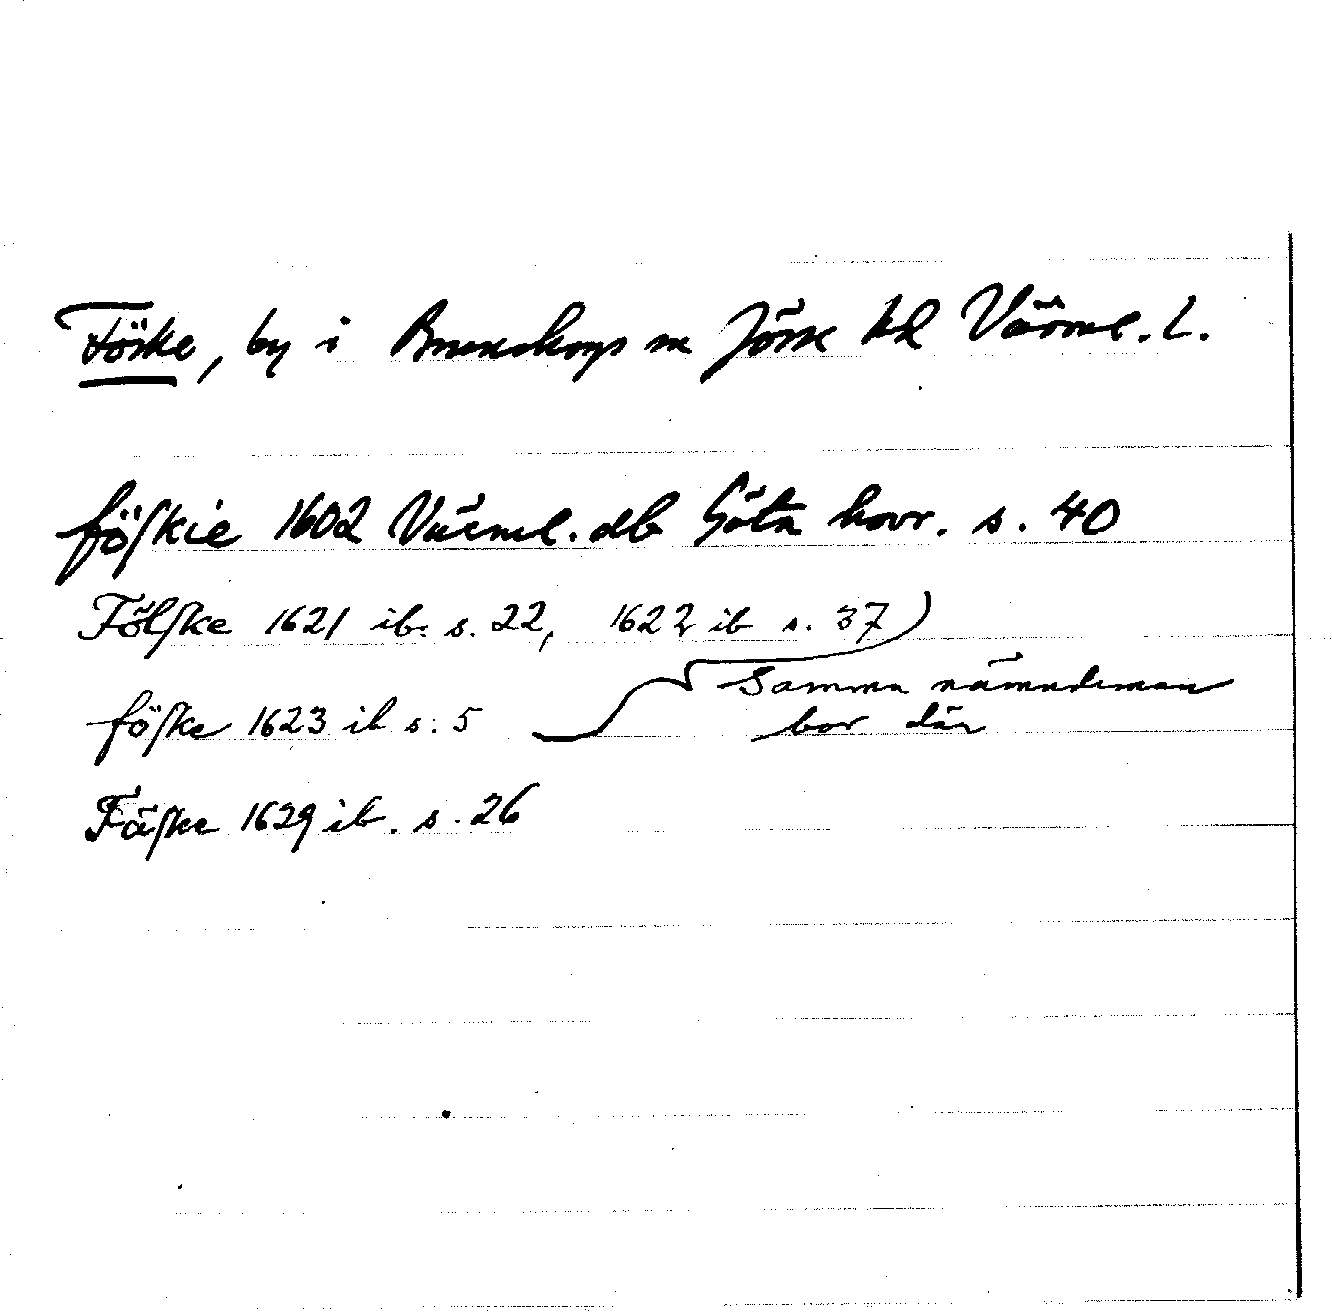 Föske, by i Brunskogs sn Jösse hd Värml. l.
föſkie 1602 Värml. db Göta hovr. s. 40
Fölſke 1621 ib. s. 22, 1622 ib s. 37)
Samma nämndeman
föſke 1623 ib s. 5
bor där
Fäſke 1629 ib. s. 26